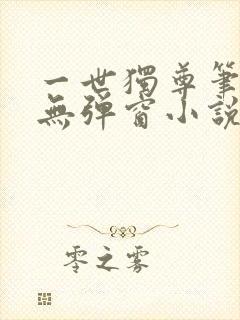 一世獨尊筆
無彈窗小說
零之雾